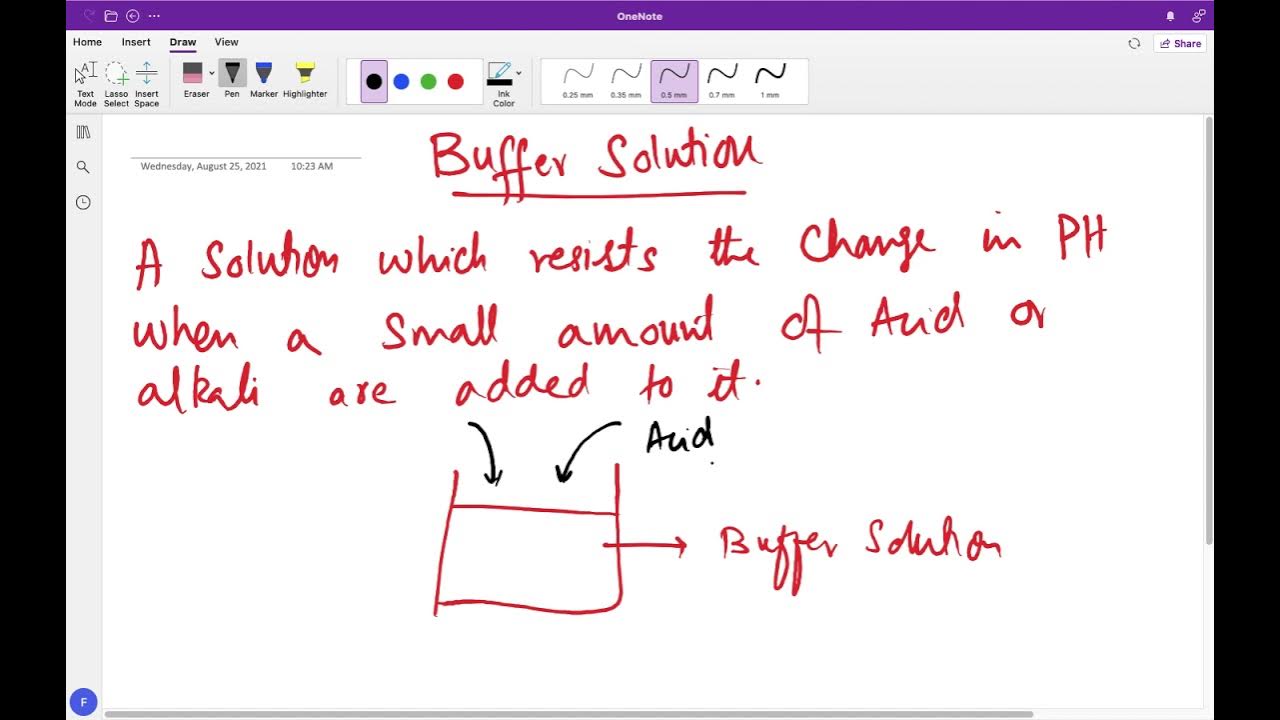 OneNote
Home Insert Draw View
Share
Text Mode
Lasso Select
Insert Space
Eraser
Pen
Marker
Highlighter
Ink Color
0.25 mm
0.35 mm
0.5 mm
0.7 mm
1 mm
Wednesday, August 25, 2021 10:23 AM
Buffer Solution
A Solution which resists the Change in PH
when a small amount of Acid or
alkali are added to it.
Acid
Buffer Solution
F